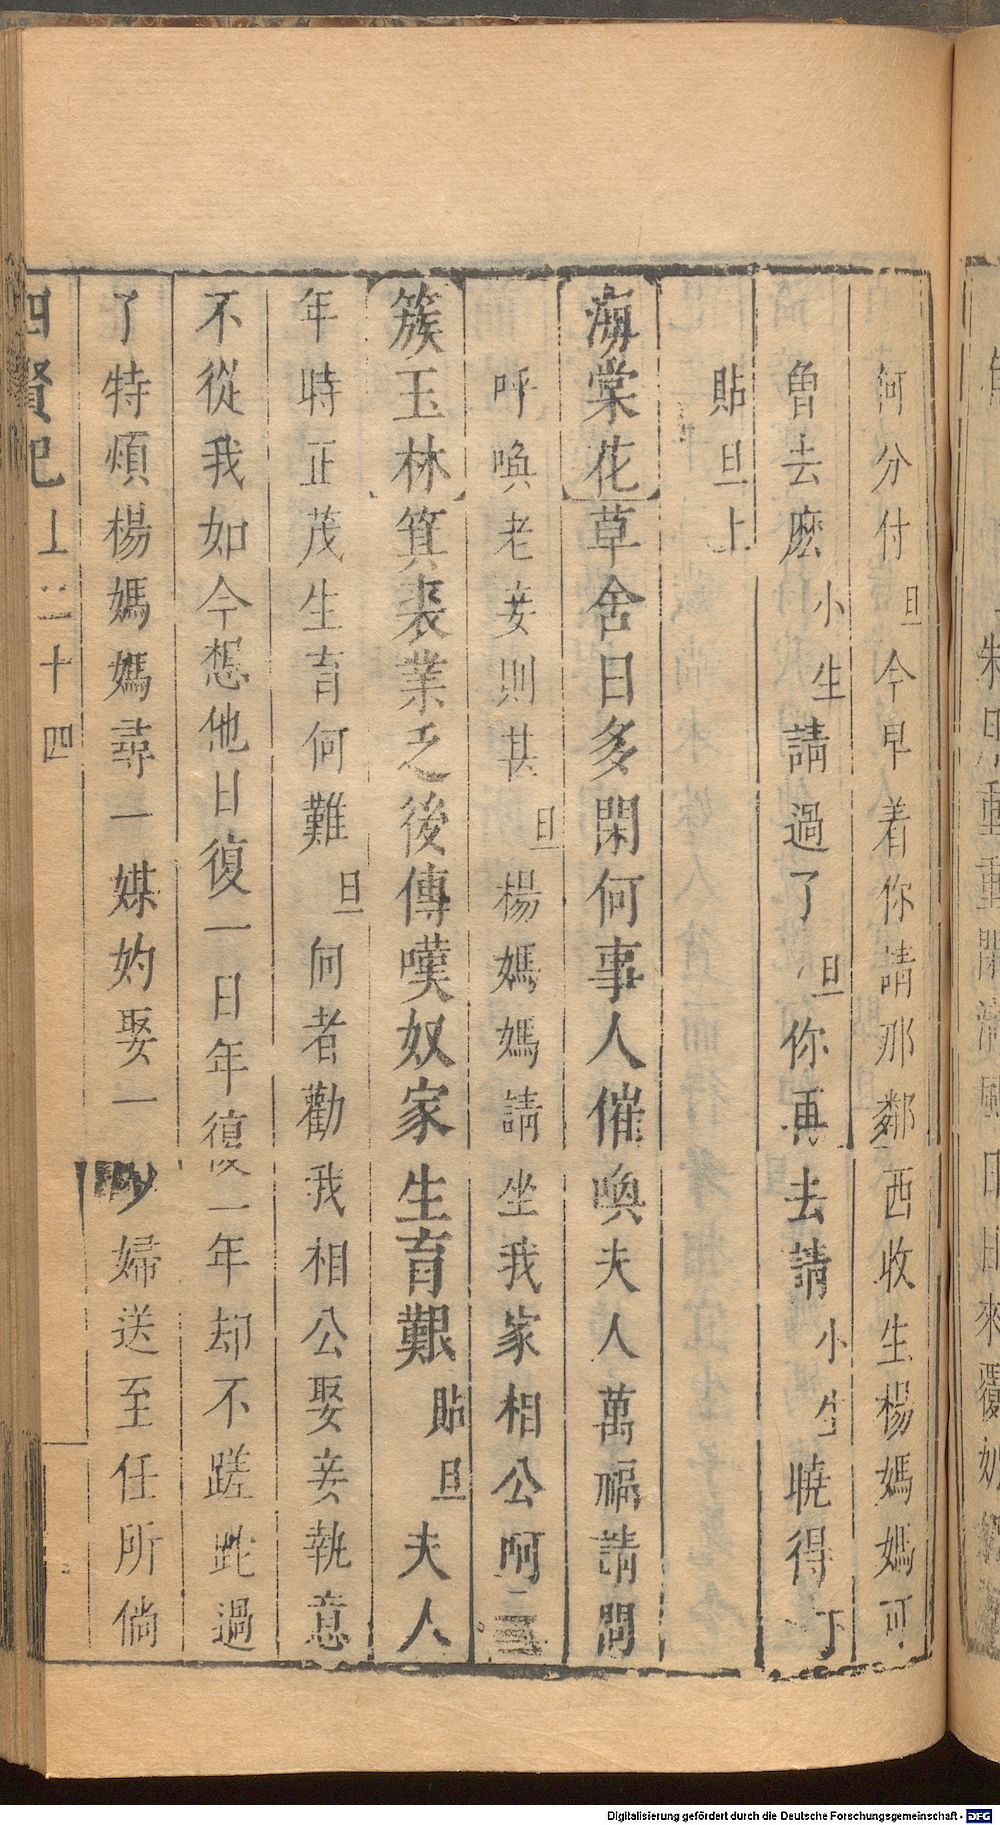 何分付旦今早着你請那鄰西收生楊媽媽可
曾去麽小生請過了旦你再去請小生曉得下
貼旦上
海棠花草舍日多閑何事人催喚夫人萬福請問
呼喚老妾則甚旦楊媽媽請坐我家相公呵
簇玉林箕裘業乏後傳嘆奴家生育艱貼旦夫人
年時正茂生育何難旦向者勸我相公娶妾執意
不從我如今想他日復一日年復一年却不蹉跎過
了特煩楊媽媽尋一媒妁娶一少婦送至任所倘
四賢記上二十四
Digitalisierung gefördert durch die Deutsche Forschungsgemeinschaft - DFG